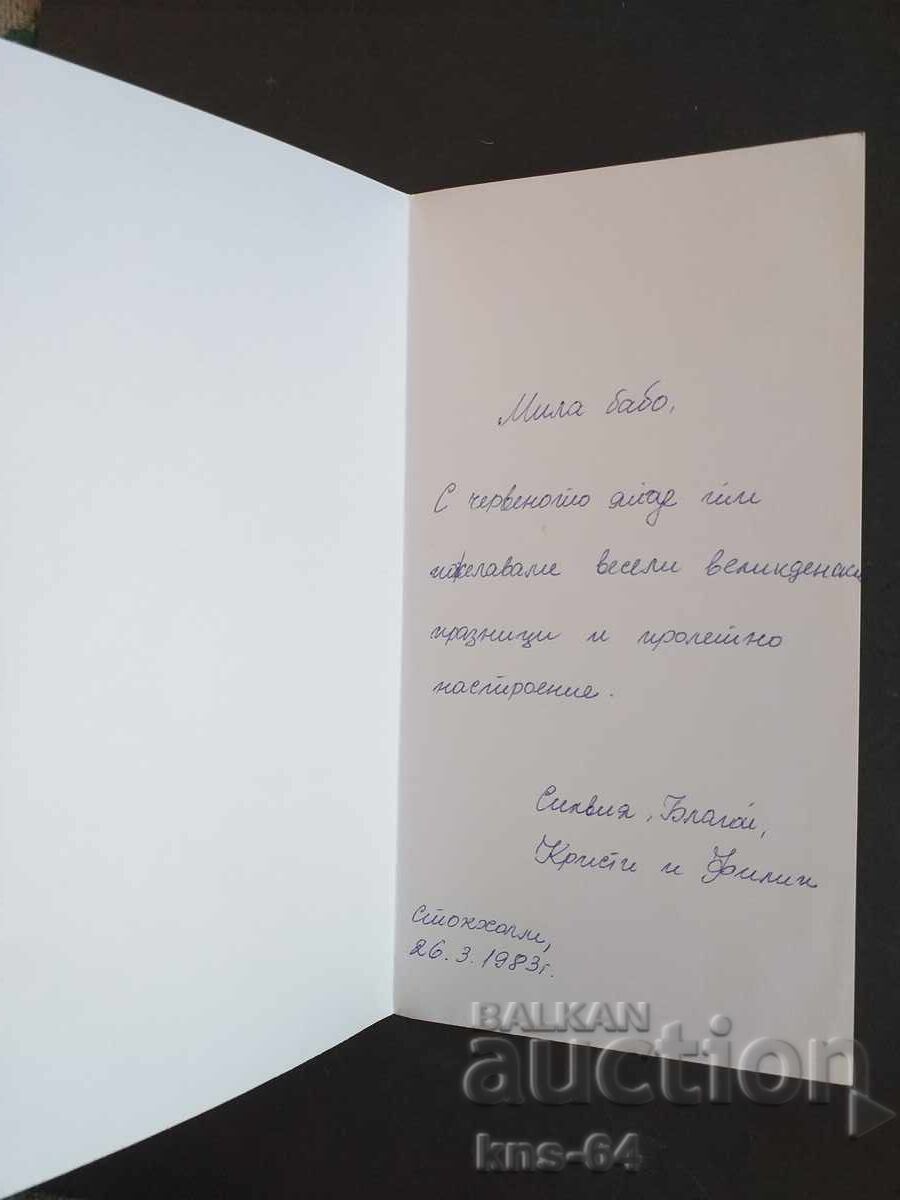 Мила бабо,
С червеното яйце ти
пожелаваме весели великденски
празници и пролетно
настроение.
Силвия, Благой,
Кристи и Филип
Стокхолм,
26.3.1983г.
BALKAN
auction
kns-64